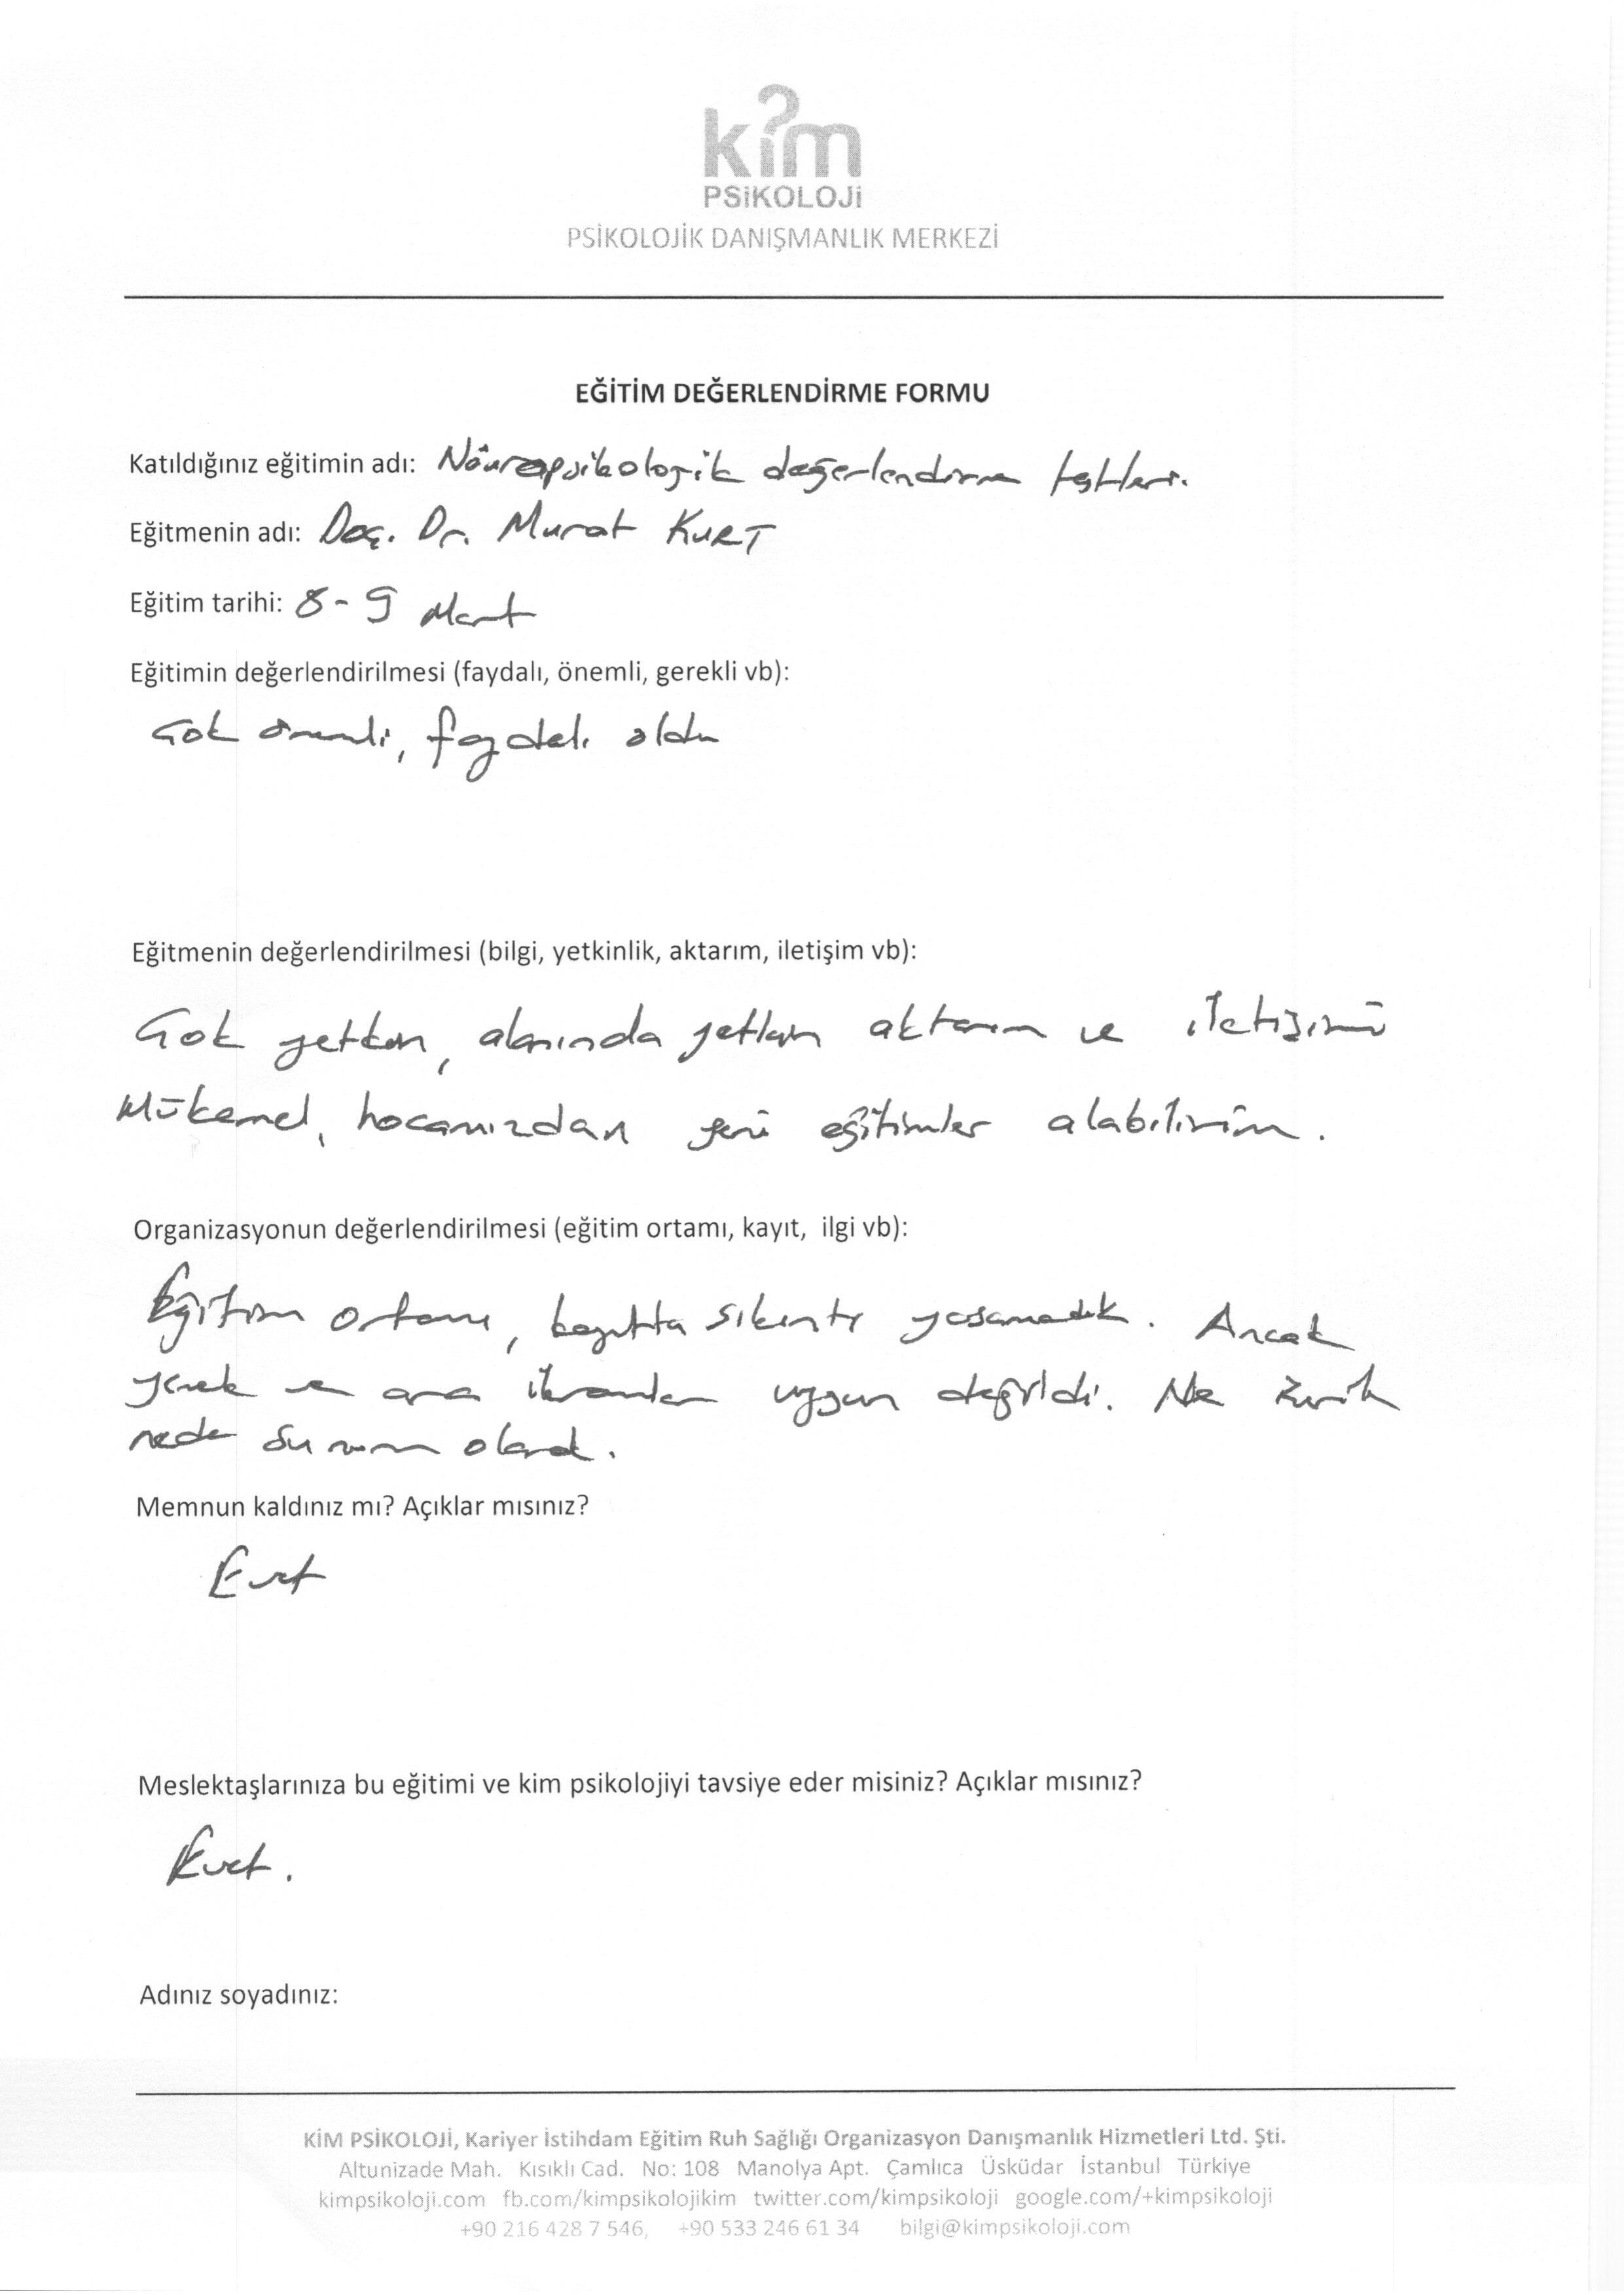 kim
PSiKOLOJi
PSİKOLOJİK DANIŞMANLIK MERKEZİ
EĞİTİM DEĞERLENDİRME FORMU
Katıldığınız eğitimin adı: Nöuropsikolojik değerlendirme testleri.
Eğitmenin adı: Doç. Dr. Murat KURT
Eğitim tarihi: 8-9 Mart
Eğitimin değerlendirilmesi (faydalı, önemli, gerekli vb):
Çok önemli, faydalı oldu
Eğitmenin değerlendirilmesi (bilgi, yetkinlik, aktarım, iletişim vb):
Çok yetkin, alanında yetkin aktarım ve iletişimi
Mükemel, hocamızdan yeni eğitimler alabilirim.
Organizasyonun değerlendirilmesi (eğitim ortamı, kayıt, ilgi vb):
Eğitim ortamı, kayıtta sıkıntı yaşamadık. Ancak
yemek ve ara ikramlar uygun değildi. Ne
nede sunum olarak.
Memnun kaldınız mı? Açıklar mısınız?
Evet
Meslektaşlarınıza bu eğitimi ve kim psikolojiyi tavsiye eder misiniz? Açıklar mısınız?
Evet.
Adınız soyadınız:
KİM PSİKOLOJİ, Kariyer İstihdam Eğitim Ruh Sağlığı Organizasyon Danışmanlık Hizmetleri Ltd. Şti.
Altunizade Mah. Kısıklı Cad. No: 108 Manolya Apt. Çamlıca Üsküdar İstanbul Türkiye
kimpsikoloji.com fb.com/kimpsikolojikim twitter.com/kimpsikoloji google.com/+kimpsikoloji
+90 216 428 7 546, +90 533 246 61 34 bilgi@kimpsikoloji.com